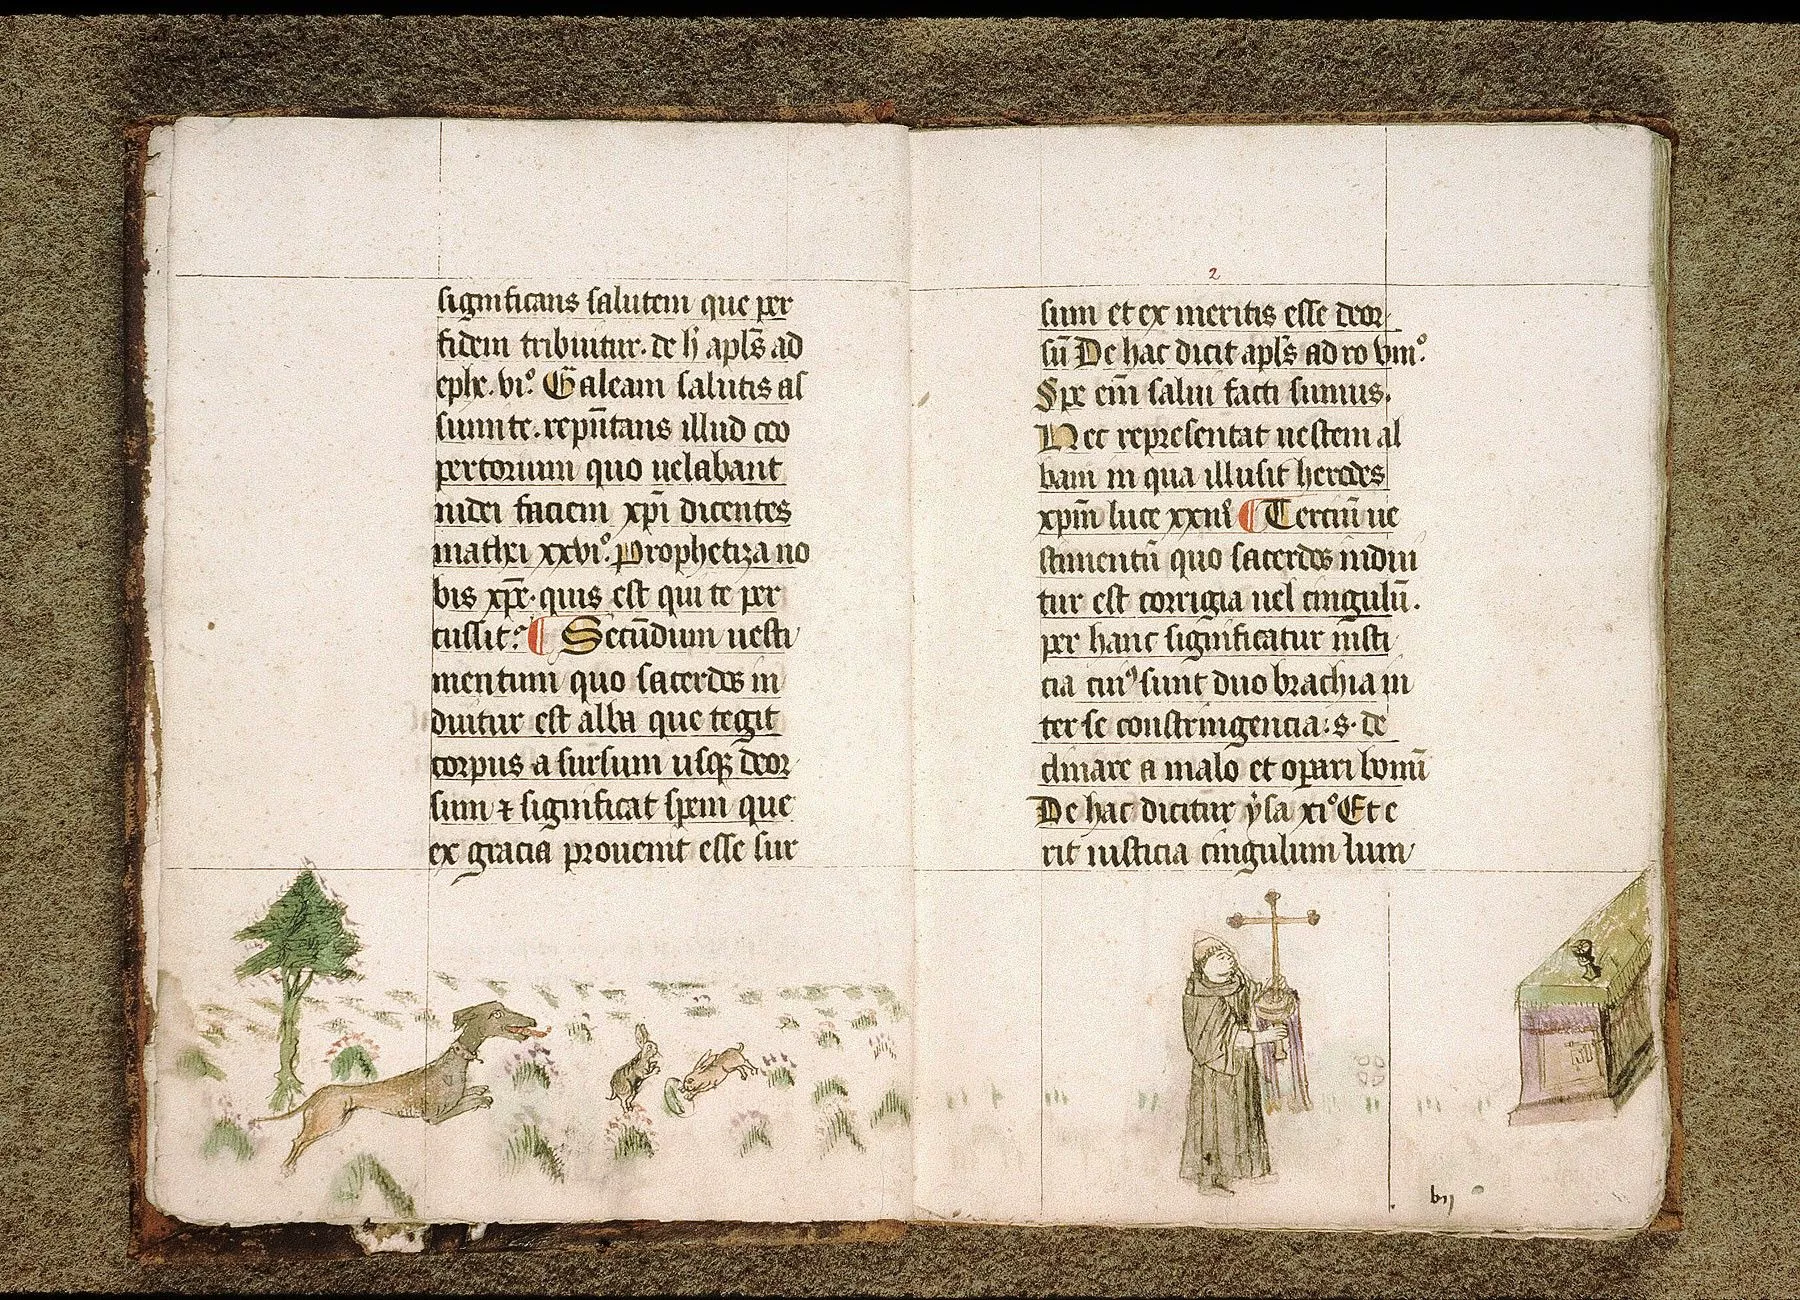 significans salutem que per
fidem tribuitur. de h' apl̃s ad
ephe. vi°. Galeam salutis as
sumite. repñtans illud coo
pertorium quo uelabant
iudei faciem xp̃i dicentes
mathei xxvi°. Prophetiza no
bis xp̃e. quis est qui te per
cussit? ¶ Secũdum uesti
mentum quo sacerdos in
duitur est alba que tegit
corpus a sursum usqꝫ deor
sum ⁊ significat spem que
ex gracia prouenit esse sur
2
sum et ex meritis esse deor
sũ De hac dicit apl̃s ad ro viii°.
Spe eñi salui facti sumus.
Hec representat uestem al
bam in qua illusit herodes
xp̃m luce xxiii° ¶ Terciũ ue
stimentũ quo sacerdos indui
tur est corrigia uel cingulũ.
per hanc significatur iusti
cia cuiꝰ sunt duo brachia in
ter se constringencia: s. de
clinare a malo et operari bonũ
De hac dicitur ysa xi° Et e
rit iusticia cingulum lum
bij